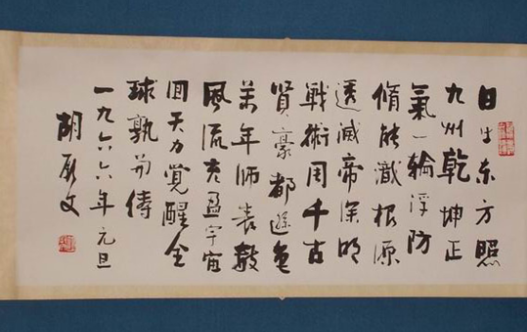 日出东方照
九州乾坤正
氣一輪浮防
脩能澈根源
透滅帝深明
戰術用千古
賢豪都遜色
萬年師表教
風流充盈宇宙
回天力覺醒全
球孰可儔
一九六六年元旦
胡厥文